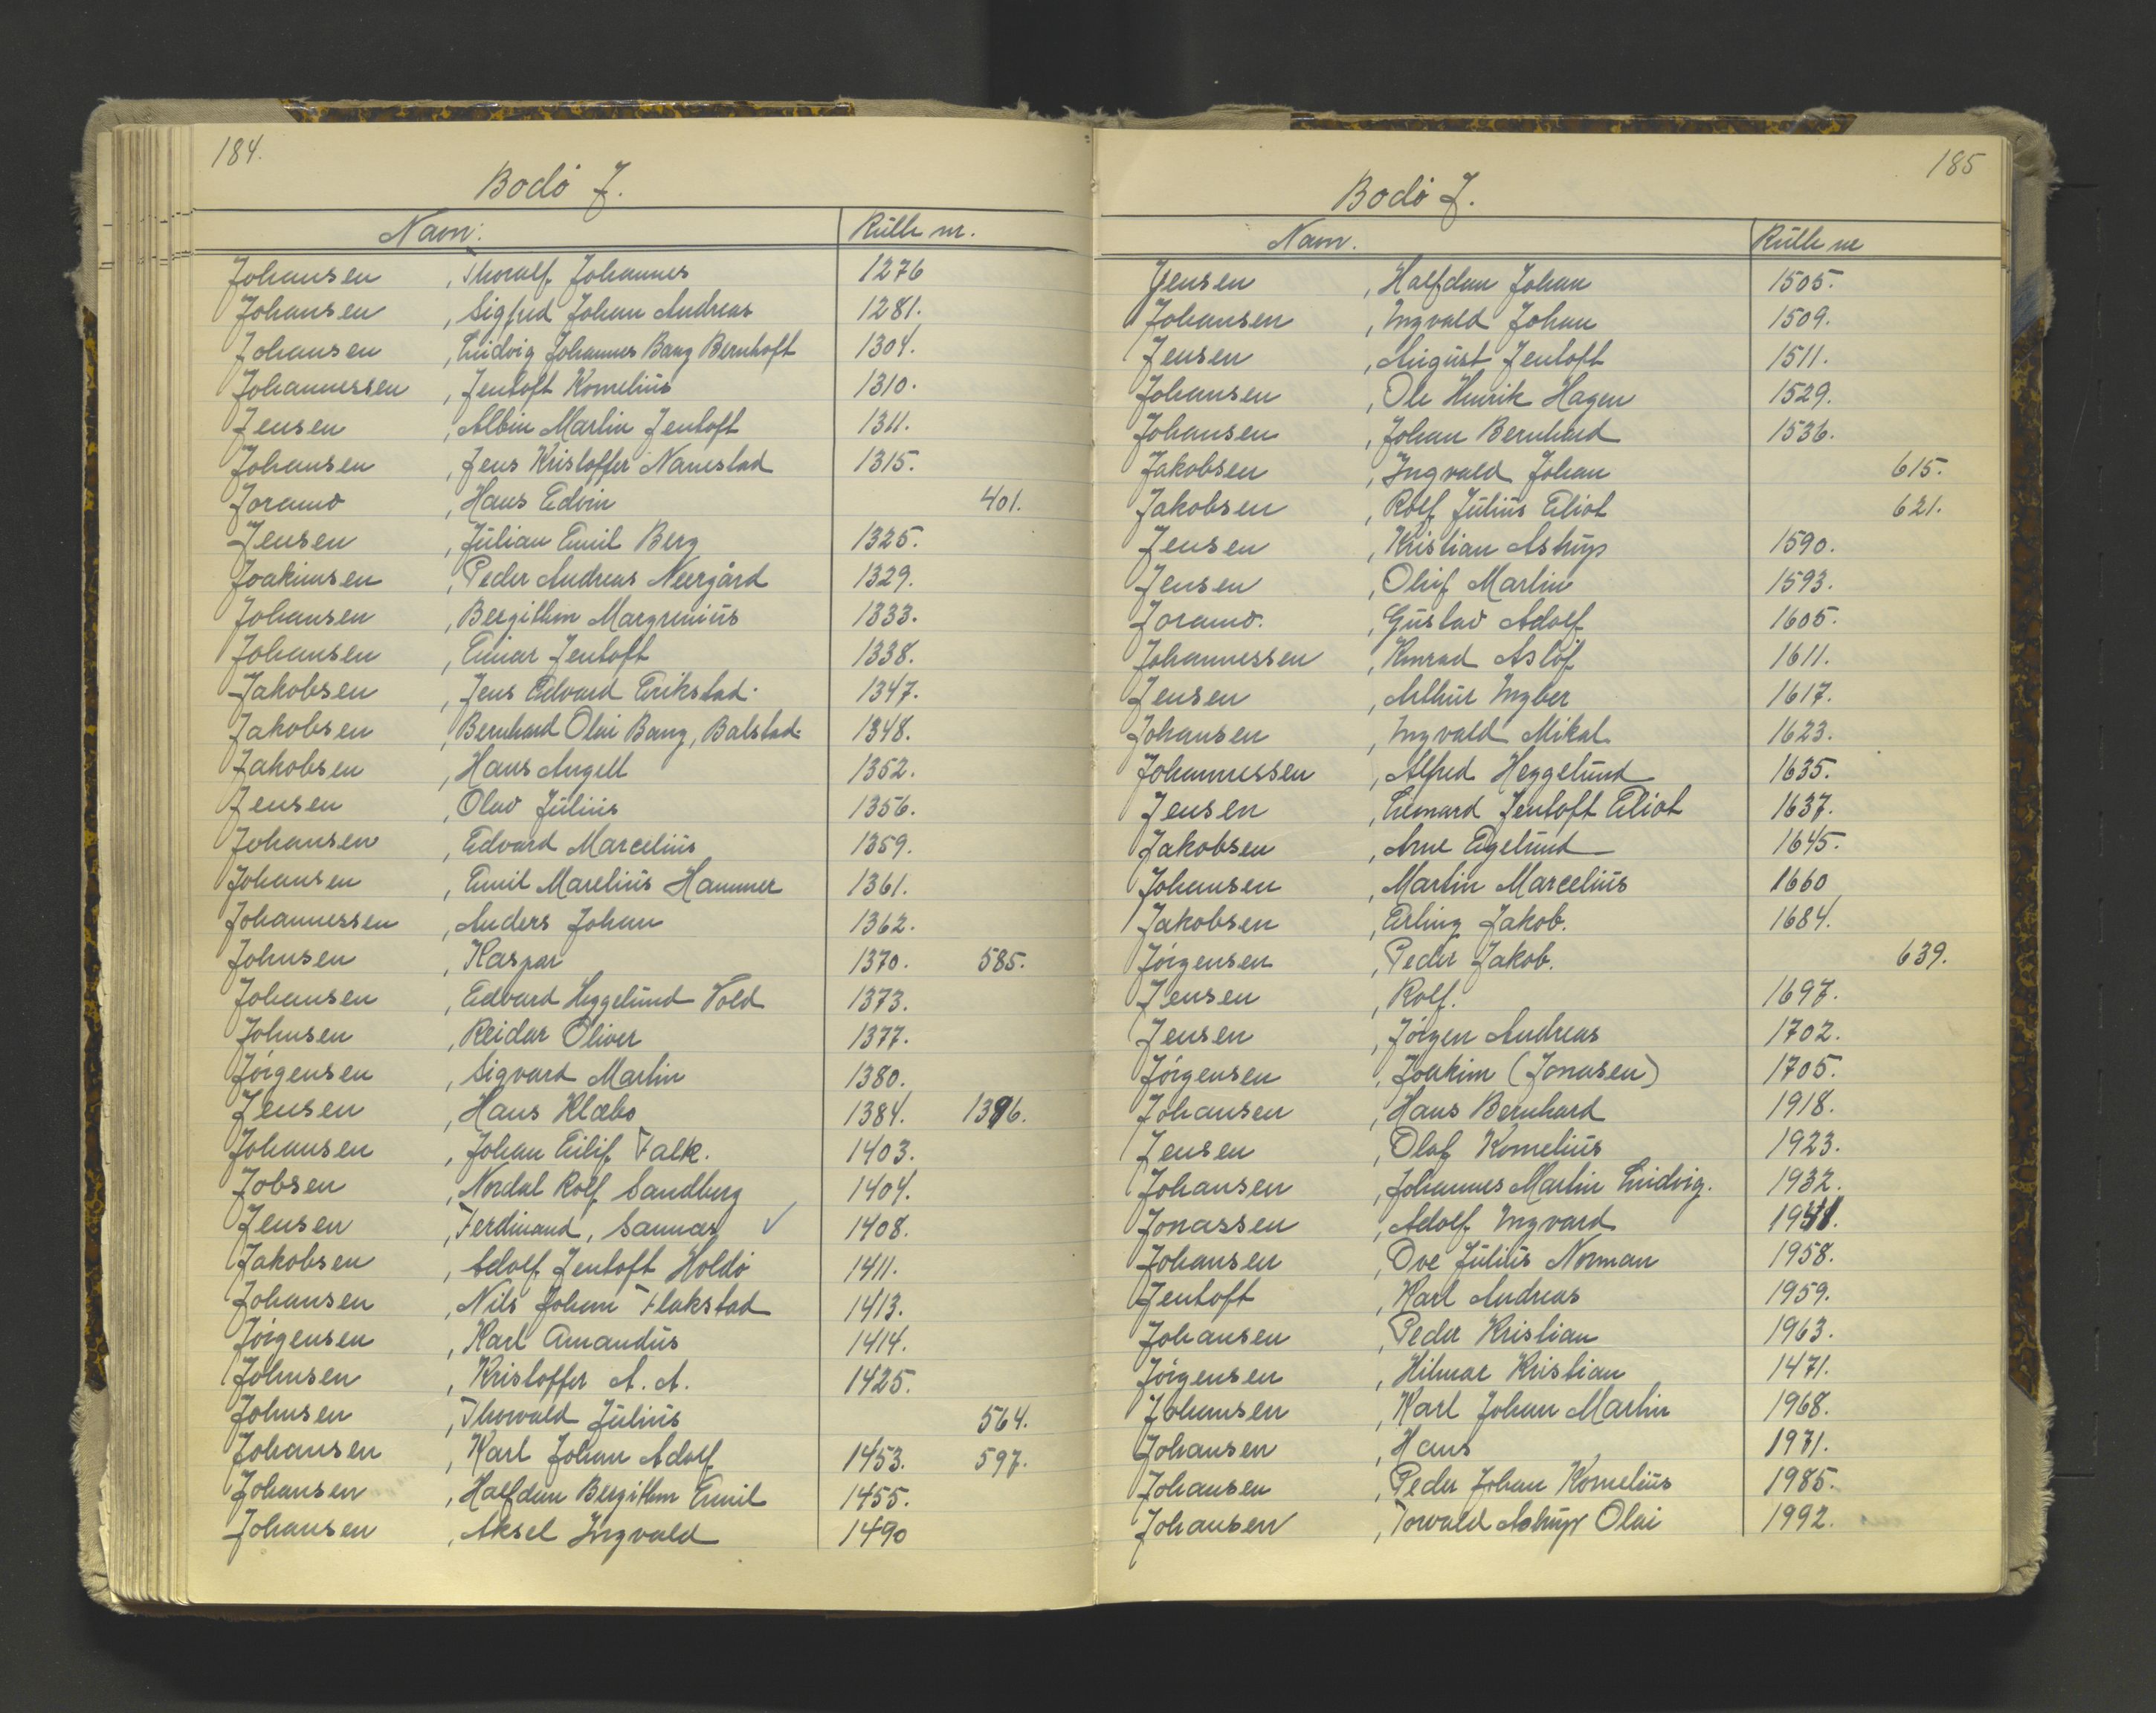 184.
Bodø J.
Navn. Rulle nr.
Johansen , Thoralf Johannes 1276
Johansen , Sigfred Johan Andreas 1281.
Johansen , Ludvig Johannes Bang Bernhoft 1304.
Johannessen , Jentoft Kornelius 1310.
Jensen , Albin Martin Jentoft 1311.
Johansen , Jens Kristoffer Namstad 1315.
Joramo , Hans Edvin 401.
Jensen , Julian Emil Berg 1325.
Joakimsen , Peder Andreas Neergård 1329.
Johansen , Bergithon Margrenius 1333.
Johansen , Einar Jentoft 1338.
Jakobsen , Jens Edvard Erikstad. 1347.
Jakobsen , Bernhard Olai Bang, Balstad. 1348.
Jakobsen , Hans Angell 1352.
Jensen , Olav Julius 1356.
Johansen , Edvard Marcelius 1359.
Johansen , Emil Marelius Hammer 1361.
Johannessen , Anders Johan 1362.
Johnsen , Kaspar 1370. 585.
Johansen , Edvard Heggelund Vold 1373.
Johnsen , Reidar Oliver 1377.
Jørgensen , Sigvard Martin 1380.
Jensen , Hans Klæbo 1384. 1396.
Johansen , Johan Eilif Falk. 1403.
Jobsen , Nordal Rolf Sandberg 1404.
Jensen , Ferdinand, Sannæs ✓ 1408.
Jakobsen , Adolf Jentoft Holdø 1411.
Johansen , Nils Johan Flakstad 1413.
Jørgensen , Karl Amandus 1414.
Johnsen , Kristoffer A. A. 1425.
Johnsen , Thorvald Julius 564.
Johansen , Karl Johan Adolf 1453. 597.
Johansen , Halfdan Bergithon Emil 1455.
Johansen , Aksel Ingvald 1490
185
Bodø J.
Navn. Rulle nr
Jensen , Halfdan Johan 1505.
Johansen , Ingvald Johan 1509.
Jensen , August Jentoft 1511.
Johansen , Ole Henrik Hagen 1529.
Johansen , Johan Bernhard 1536.
Jakobsen , Ingvald Johan 615.
Jakobsen , Rolf Julius Eliot 621.
Jensen , Kristian Astrup 1590.
Jensen , Oluf Martin 1593.
Joramo. , Gustav Adolf 1605.
Johannessen , Konrad Asløf 1611.
Jensen , Arthur Ingber 1617.
Johansen , Ingvald Mikal 1623.
Johannessen , Alfred Heggelund 1635.
Jensen , Leonard Jentoft Eliot 1637.
Jakobsen , Arne Egelund 1645.
Johansen , Martin Marcelius 1660
Jakobsen , Erling Jakob. 1684.
Jørgensen , Peder Jakob. 639.
Jensen , Rolf. 1697.
Jensen , Jørgen Andreas 1702.
Jørgensen , Joakim (Jonasen) 1705.
Johansen , Hans Bernhard 1918.
Jensen , Olaf Kornelius 1923.
Johansen , Johannes Martin Ludvig. 1932.
Jonassen , Adolf Ingvard 1941.
Johansen , Ove Julius Norman 1958.
Jentoft , Karl Andreas 1959.
Johansen , Peder Kristian 1963.
Jørgensen , Hilmar Kristian 1471.
Johansen , Karl Johan Martin 1968.
Johansen , Hans 1971.
Johansen , Peder Johan Kornelius 1985.
Johansen , Torvald Astrup Olai 1992.